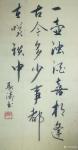 一壶浊酒喜相逢
古今多少事都
在谈笑中